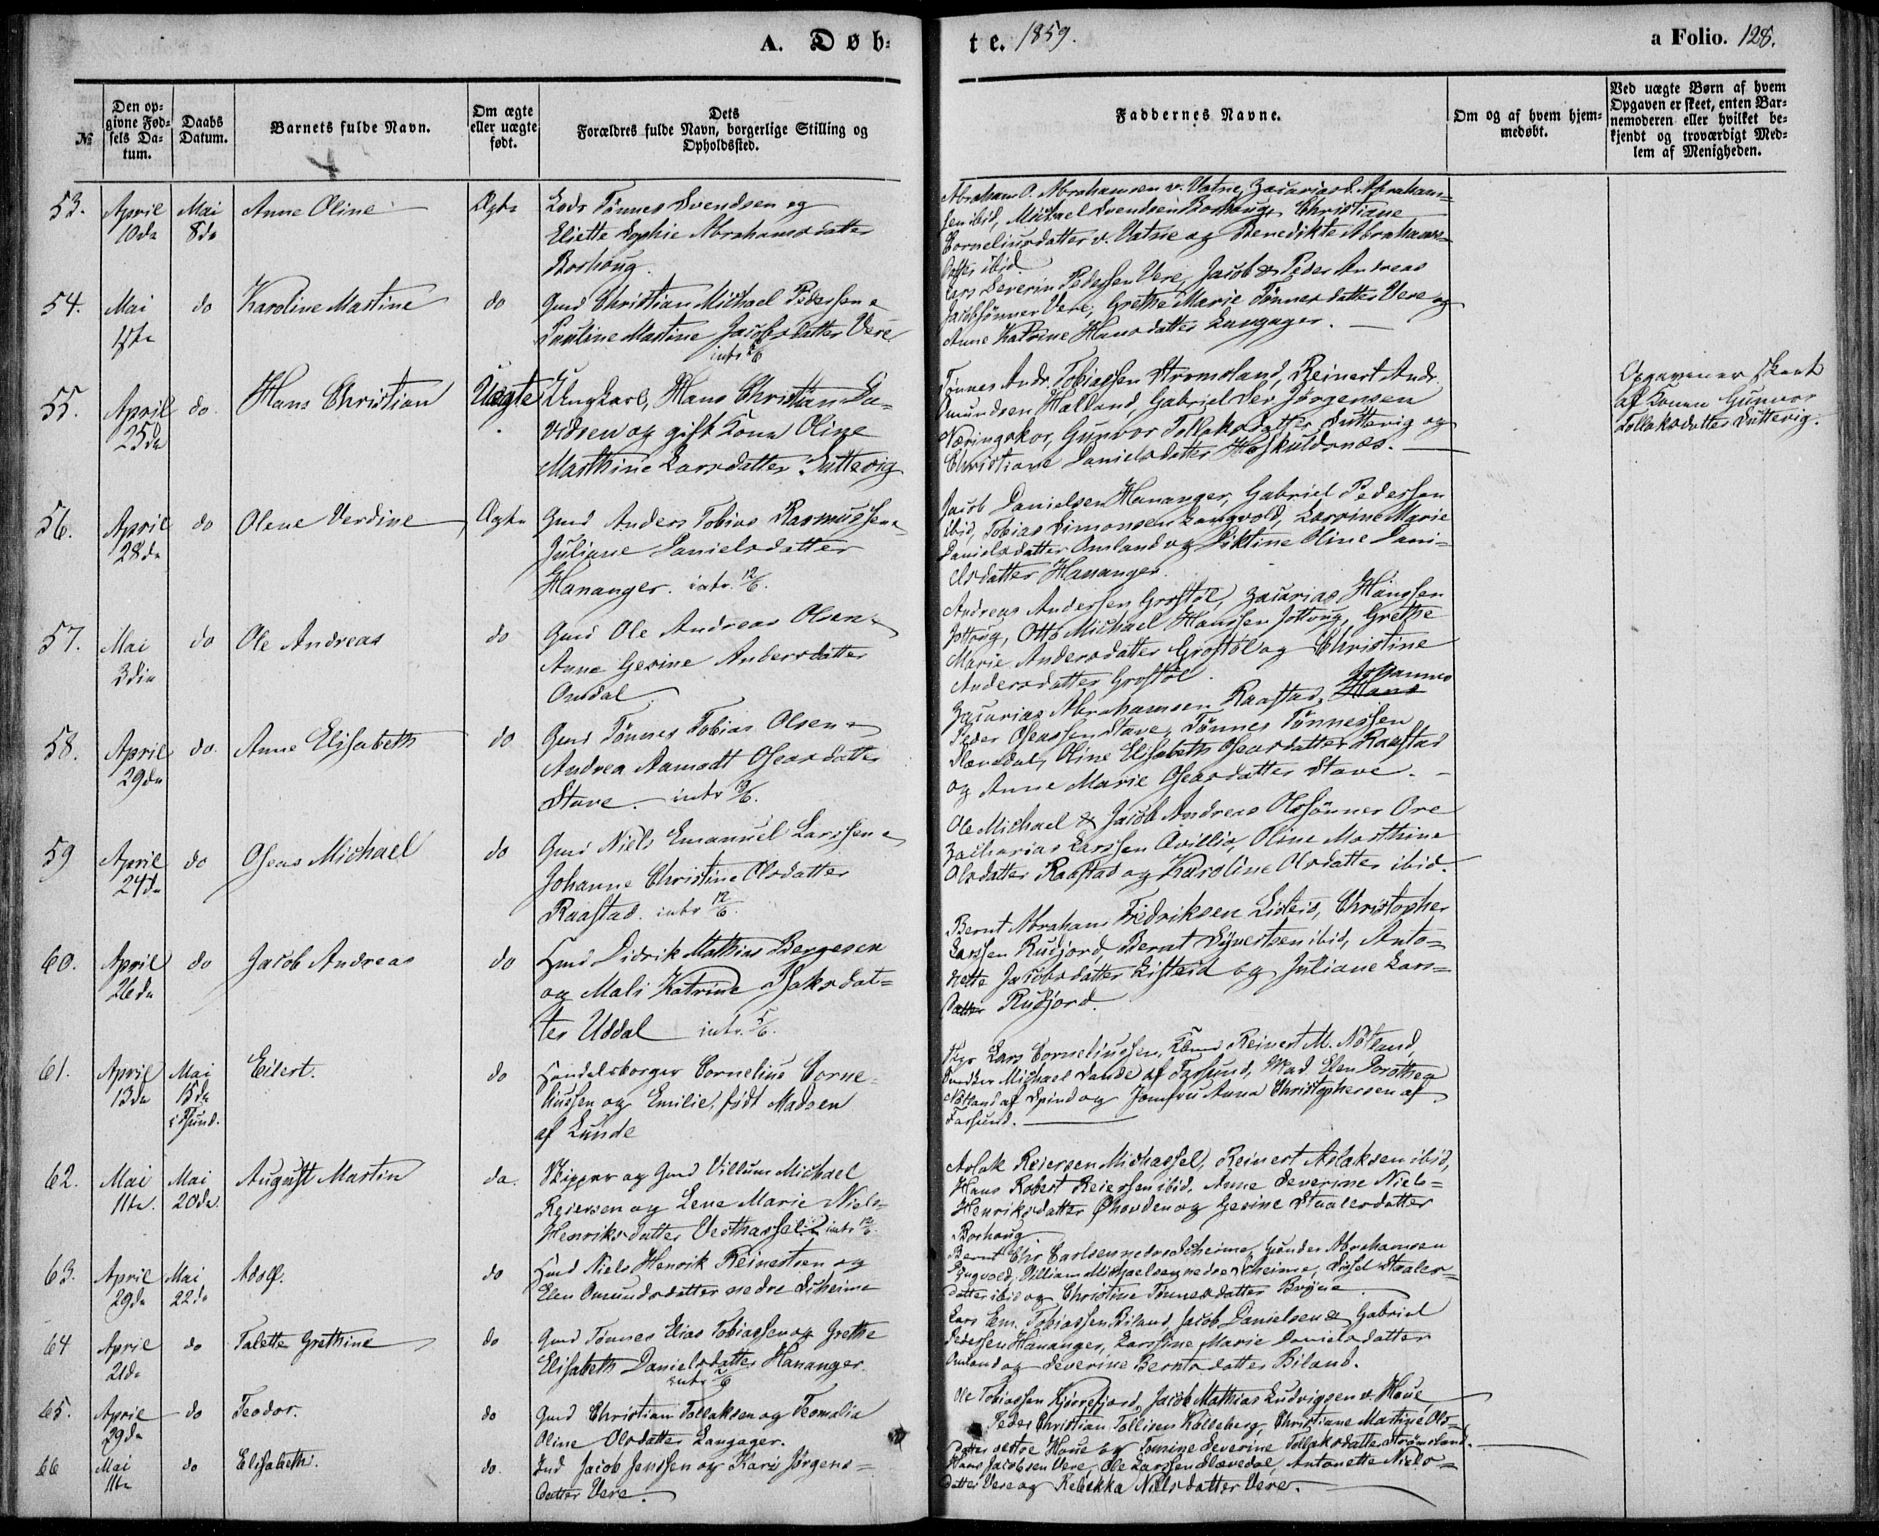 A. Døb-
te. 1859.
a Folio. 128.
№
Den op-
givne Fød-
sels Da-
tum.
Daabs
Datum.
Barnets fulde Navn.
Om ægte
eller uægte
født.
Dets
Forældres fulde Navn, borgerlige Stilling og
Opholdssted.
Faddernes Navne.
Om og af hvem hjem-
medøbt.
Ved uægte Børn af hvem
Opgaven er skeet, enten Bar-
nemoderen eller hvilket be-
kjendt og troværdigt Med-
lem af Menigheden.
53. April Mai Anne Oline Ægte Tønnes Svendsen og
10de 8de Eliette Sophie Abrahamsdatter
Borhoug.
Abraham O. Abrahamsen v. Vatne, Zacarias Abraham-
sen ibid, Michael Svendsen Borhoug, Christiane
Corneliusdatter v. Vatne og Benedikte Abrahams-
datter ibid.
54. Mai do Karoline Martine do Gmd Christian Michael Pedersen
Pauline Martine Jacobsdatter Vere
Lars Severin Pedersen Vere, Jacob & Peder Andreas
Jacobsønner Vere, Grethe Marie Tønnesdatter Vere og
Anne Katrine Hansdatter Langager.
55. April do. Hans Christian Uægte Ungkarl, Hans Christian Da-
25de vidsen og gift Kone Oline
Marthine Larsdatter Luttevig
Tønnes Andr. Tobiassen Strømsland, Reinert Andr.
Omundsen Halland, Gabriel Jørgensen
Gunvor Tollaksdatter Luttevig og
Christiane Danielsdatter Høskuldsnæs.
Opgaven er skeet
af Konen Gunvor
Tollaksdatter Luttevig.
56. April do Olene Verdine Ægte Gmd Anders Tobias Rasmussen
28de Juliane Danielsdatter
Hananger. intr. 12/6.
Jacob Danielsen Hananger, Gabriel Pedersen
ibid, Tobias Simonsen Langvold, Larsine Marie
Danielsdatter Omland og Oline Dani-
elsdatter Hananger.
57. Mai do Ole Andreas do Gmd Ole Andreas Olsen
3die Anne Gesine Andersdatter
Omdal
Andreas Andersen Grostøl, Zacarias Hanssen
Jøttoug, Otto Michael Hanssen Jøttoug, Grethe
Marie Andersdatter Grostøl og Christine
Andersdatter Grostøl.
58. April do. Anne Elisabeth do Gmd Tønnes Tobias Olsen
29de Andrea Aamodt Oseasdatter
Stave. intr
Zacarias Abrahamsen Raastad, Hans Johannes
Peder Oseassen Stave, Tønnes Tønnessen
Slævdal, Oline Elisabeth Oseasdatter Raastad
og Anne Marie Oseasdatter Stave.
59 April do Oseas Michael do Gmd Niels Emanuel Larssen
24de Johanne Christine Olsdatter
Raastad. intr 12/6.
Ole Michael & Jacob Andreas Olssønner Ore
Zacharias Larssen Qvillio, Oline Marthine
Olsdatter Raastad og Karoline Olsdatter ibid.
60. April do Jacob Andreas do Hmd Didrik Mathias Bergesen
26de og Mali Katrine Isaksdat-
ter Uddal intr. 5/6.
Bernt Abraham Fredriksen Listeid, Christopher
Larssen Rudjord, Bernt Syvertsen ibid, Anto-
nette Jacobsdatter Listeid og Juliane Lars-
datter Rudjord.
61. April Mai Eilert. do Handelsborger Cornelius Corne-
13de 15de liussen og Emilie, født Madsen
af Lunde
Lars Corneliussen, Reinert M. Nøtland
Michael Sande af Farsund, Mad Elen Dorothea
Nøtland af Spind og Jomfru Anna Christophersen af
Farsund.
62. Mai Mai August Martin do. Skipper og Gmd Villum Michael
11te. 20de. Reiersen og Lene Marie Niels-
Henriksdatter Vesthassel intr 12/6
Aslak Reiersen Michassel, Reinert Aslaksen ibid,
Hans Robert Reiersen ibid. Anne Severine Niels-
Henriksdatter Øhovden og Gesine Staalesdatter
Borhoug.
63. April Mai Adolf. do Hmd Niels Henrik Reinertsen og
29de 22de Elen Omundsdatter nedre Skeime
Bernt Chr Carlsen nedre Skeime, Gunder Abrahamsen
Villiam Michaelsen nedre Skeime, Sissel Staales-
datter ibid og Christine Tønnesdatter Bryne
64 April do Talette Grethine do Gmd Tønnes Elias Tobiassen og Grethe
21de Elisabeth Danielsdatter Hananger.
Lars Em. Tobiassen Biland, Jacob Danielsen & Gabriel
Pedersen Hananger, Larsine Marie Danielsdatter
Omland og Severine Berntsdatter Biland.
65. April do Teodor. do Gmd Christian Tollaksen og Teomalia
29de Oline Olsdatter Langager.
Ole Tobiassen Kjørrefjord, Jacob Mathias Ludvigsen v. Haue,
Peder Christian Tollisen Kalleberg, Christiane Martine Ols-
datter vestre Haue og Tomine Severine Tollaksdatter Strømsland.
66 Mai do Elisabeth. do. Ind Jacob Jenssen og Kari Jørgens-
11te datter Vere.
Hans Jacobsen Vere, Ole Larssen Slævedal, Antonette Niels-
datter Vere og Rebekka Nielsdatter Vere.